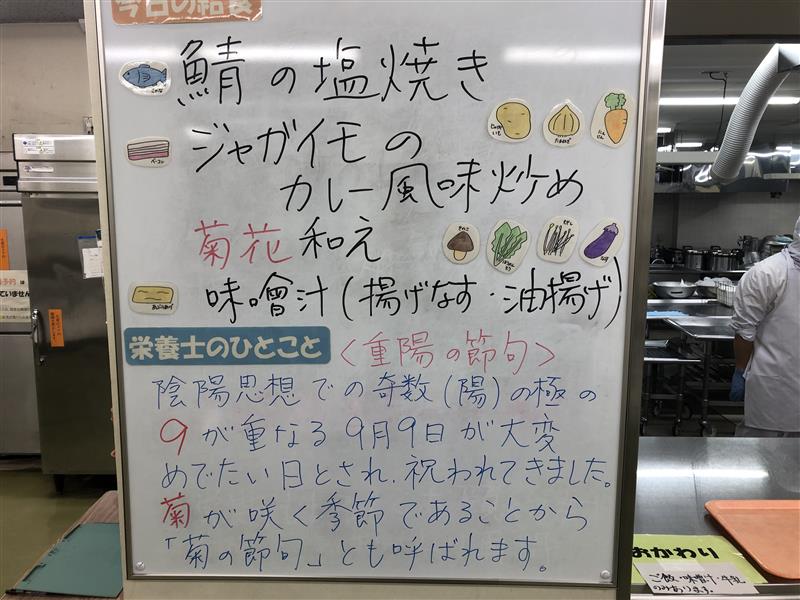 今日の給食
鯖の塩焼き
ジャガイモの
カレー風味炒め
菊花和え
味噌汁(揚げなす・油揚げ)
栄養士のひとこと
<重陽の節句>
陰陽思想での奇数(陽)の極の
9が重なる9月9日が大変
めでたい日とされ、祝われてきました。
菊が咲く季節であることから
「菊の節句」とも呼ばれます。
おかわり
ご飯・味噌汁・牛乳
のみあります。